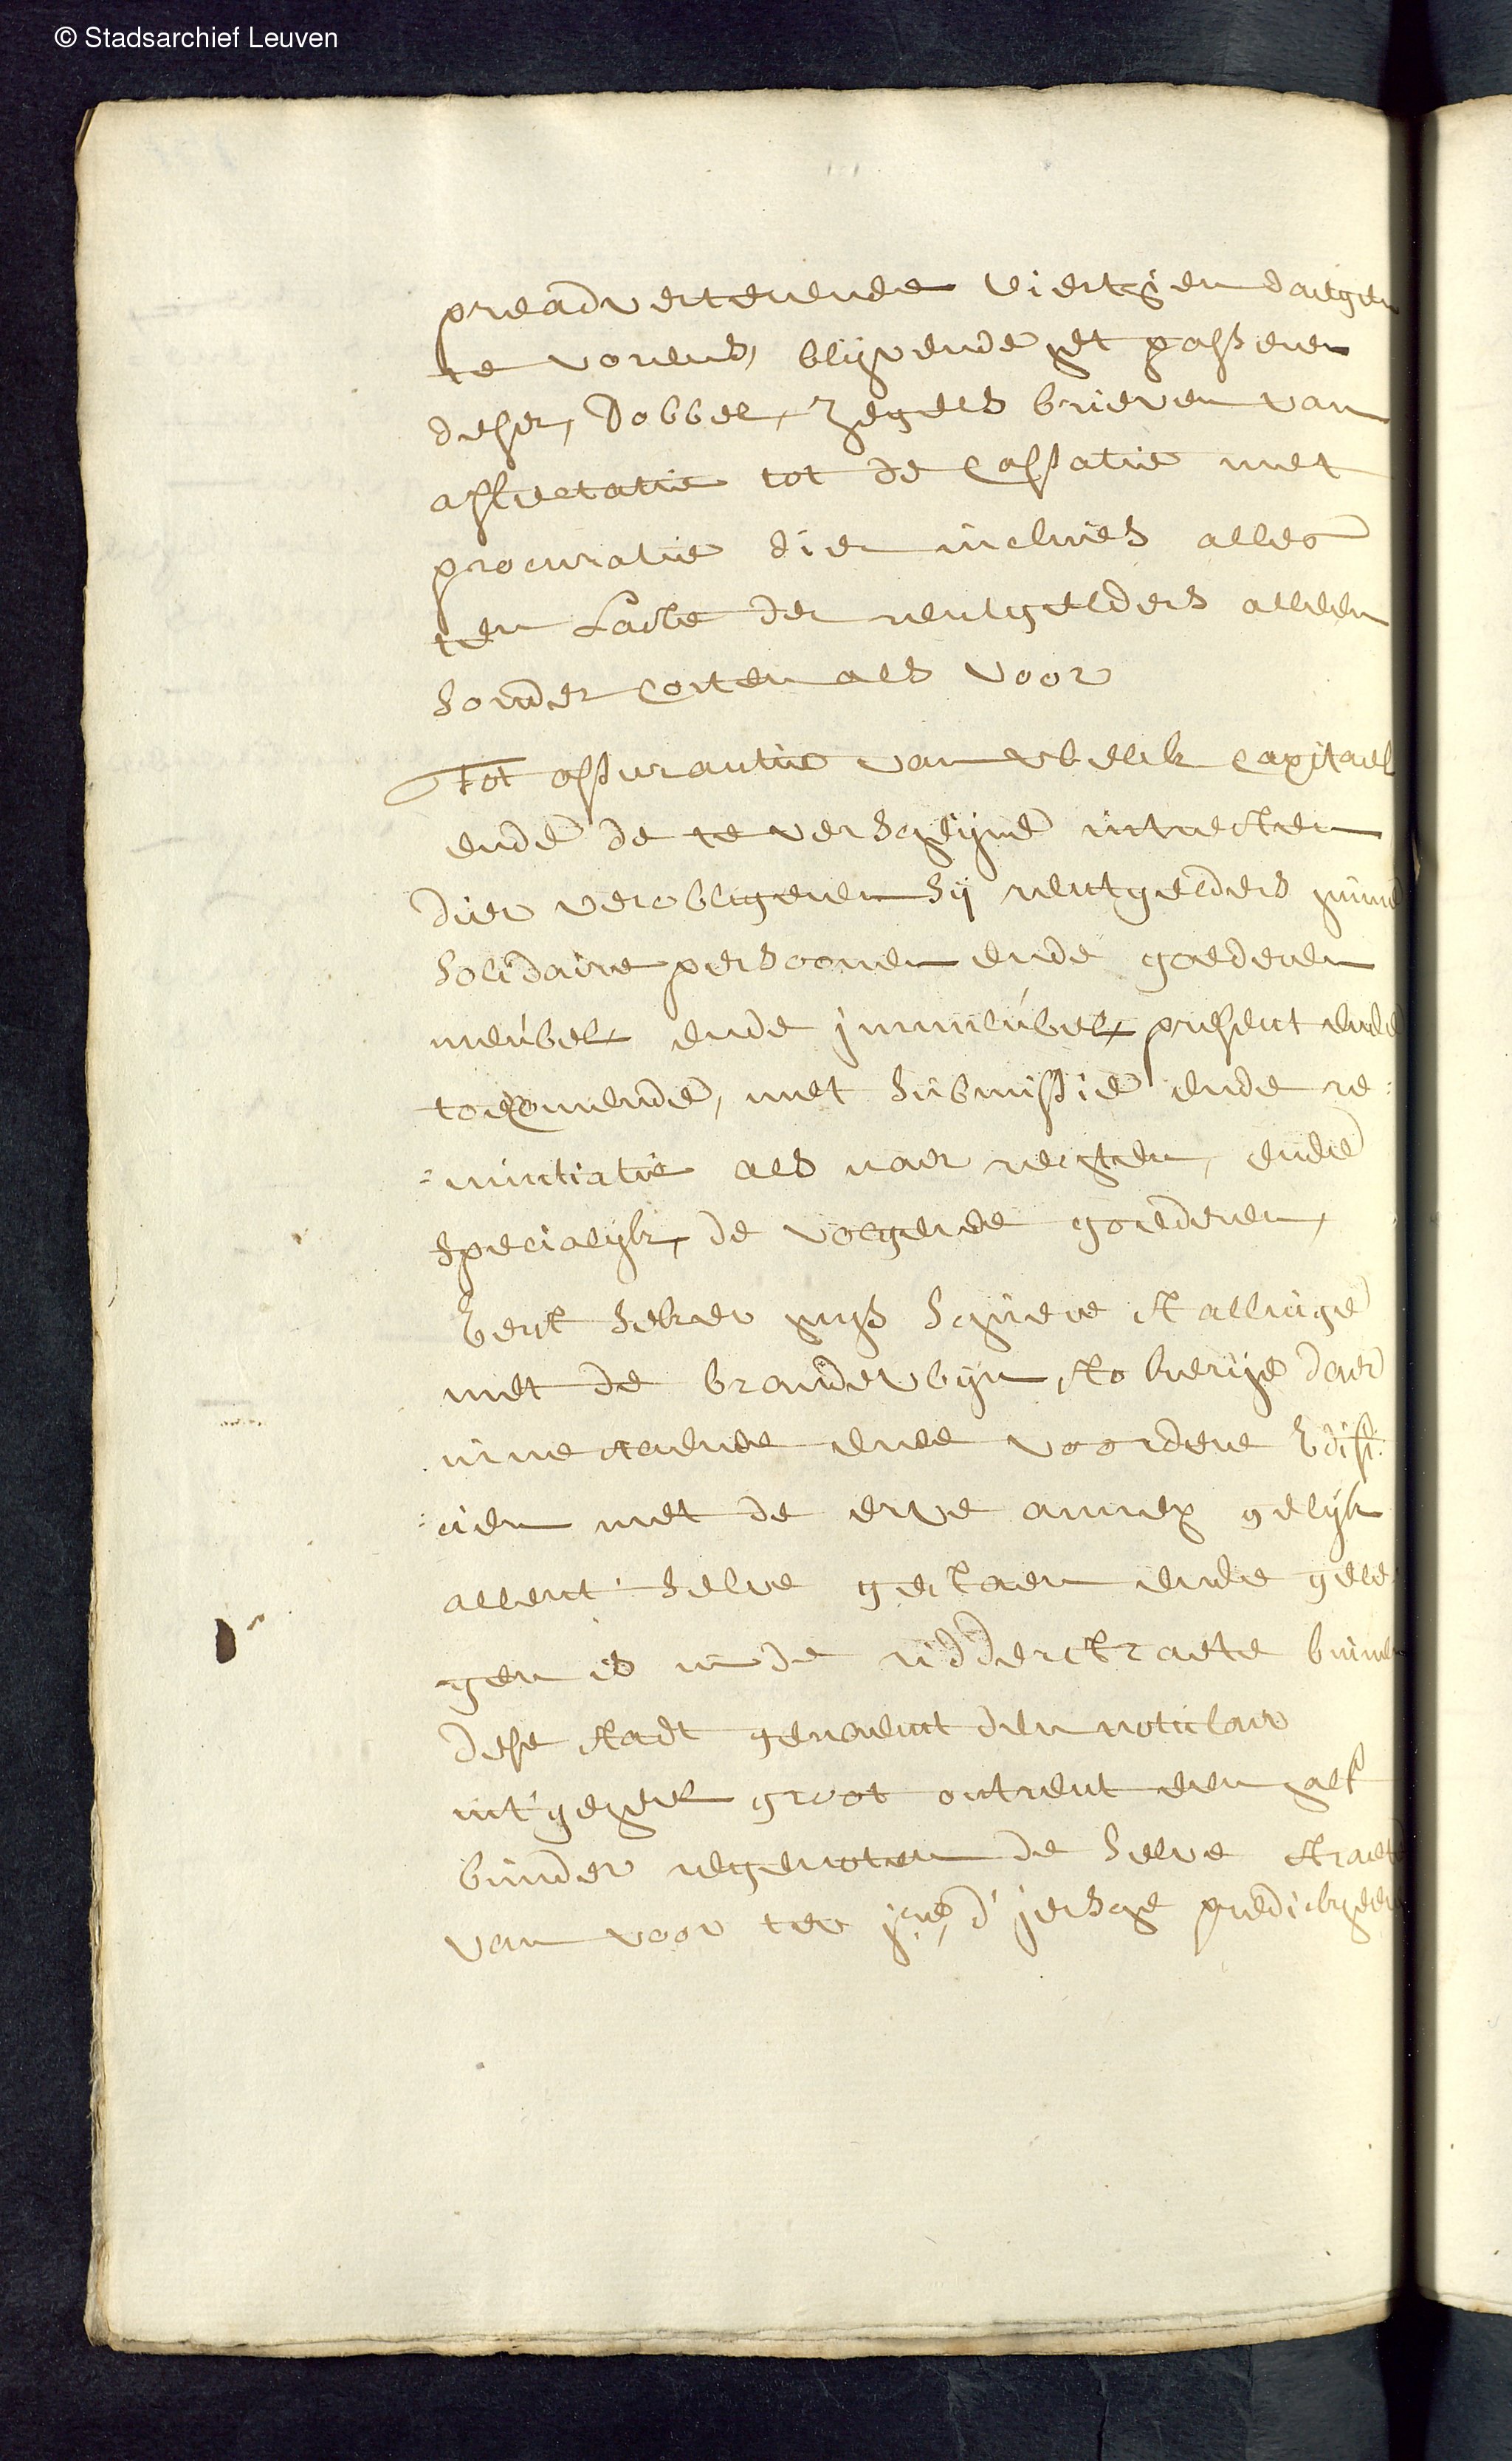 © Stadsarchief Leuven
preadverterende vierthien daegen
te vorens, blijvende het passeren
deser, dobbel, zegels brieven van
affectatie tot de cassatie met
procuratie dier incluies alles
ten laste der rentgelders alleen
sonder corten als voor
Tot assurantie van welck capitael
ende de te verschijne intresten
dier verobligeren sij rentgelders hunne
solidaire persoonen ende goederen
meubel, ende immeubel, present ende
toecomende, met submissie ende re:
=nuntiatie als naer rechten, ende
specialijk, de volgende goederen,
Eerst seker huys schuere stallinge
met de brandewijn stokerije daer
inne staende ende voordere Edifi:
:cien met de erve annex gelijk
allent' selve gestaen ende gele
gen is in de ridderstraete binnen
dese stadt genaemt den noticlaer
int'geheel groot ontrent een half
bunder regenoten de selve straete
van voor ter jre, d' jersche predickheeren